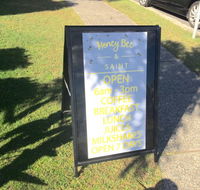 Honey Bee
&
SAINT
OPEN
6am - 3pm
COFFEE
BREAKFAST
LUNCH
JUICE
MILKSHAKES
OPEN 7 DAYS